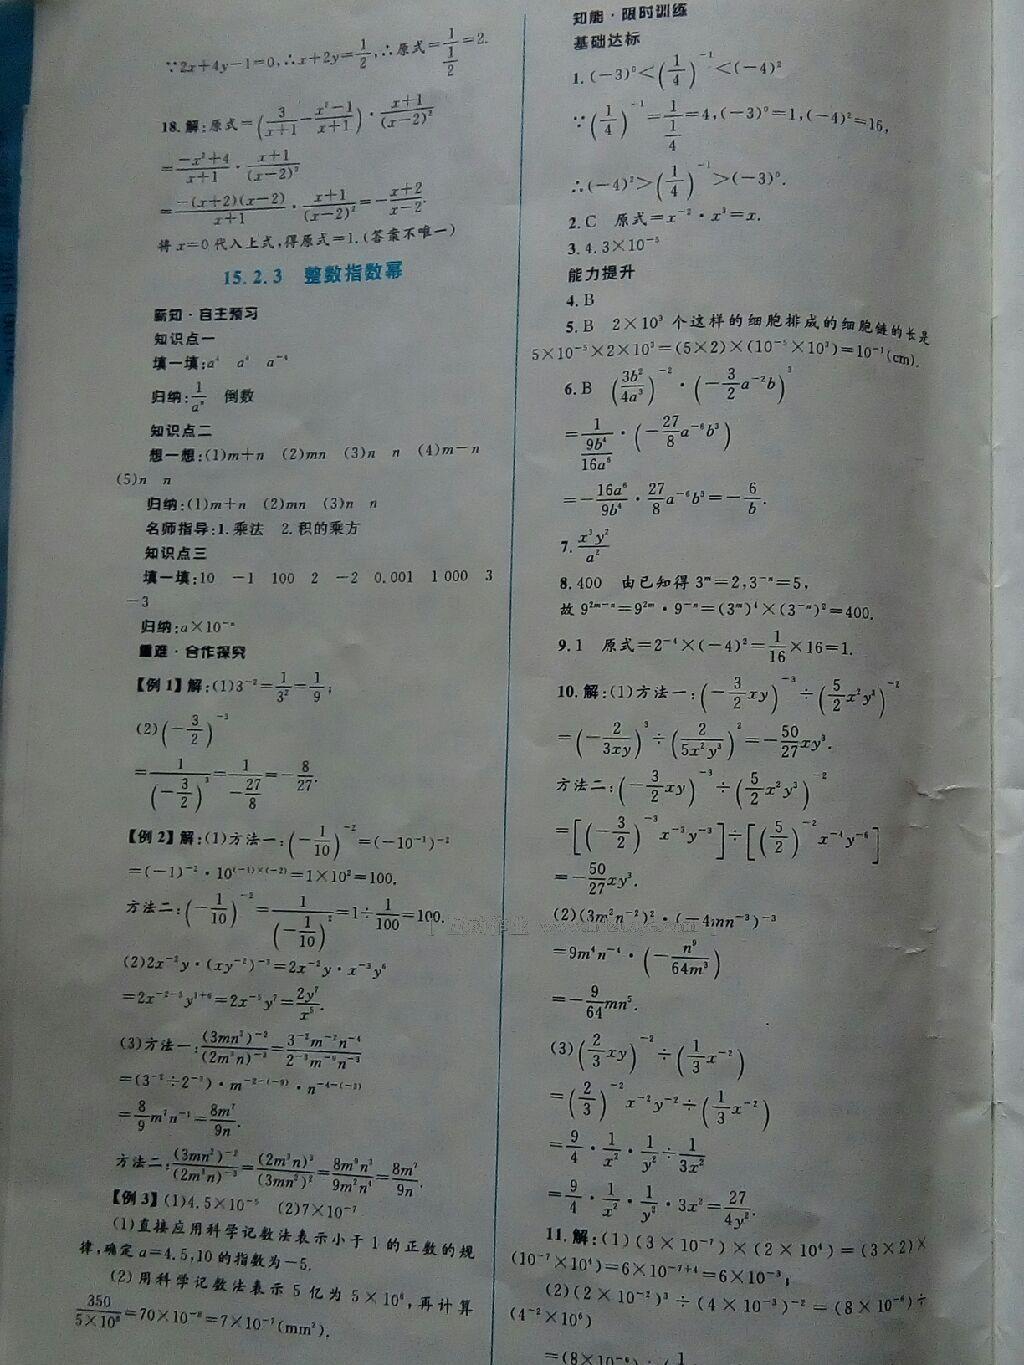 ∵2x+4y-1=0,∴x+2y=1/2,∴原式=1/(1/2)=2.
18.解:原式=(3/(x+1)-(x²-1)/(x+1))·(x+1)/(x-2)²
=(-x²+4)/(x+1)·(x+1)/(x-2)²
=-(x+2)(x-2)/(x+1)·(x+1)/(x-2)²=-(x+2)/(x-2).
将x=0代入上式,得原式=1.(答案不唯一)
15.2.3 整数指数幂
新知·自主预习
知识点一
填一填:a⁴ a⁴ a⁻⁴
归纳:1/aⁿ 倒数
知识点二
想一想:(1)m+n (2)mn (3)n n (4)m-n
(5)n n
归纳:(1)m+n (2)mn (3)n n
名师指导:1.乘法 2.积的乘方
知识点三
填一填:10 -1 100 2 -2 0.001 1 000 3
-3
归纳:a×10⁻ⁿ
重难·合作探究
【例1】解:(1)3⁻²=1/3²=1/9;
(2)(-3/2)⁻³
=1/(-3/2)³=1/(-27/8)=-8/27.
【例2】解:(1)方法一:(-1/10)⁻²=(-10⁻¹)⁻²
=(-1)⁻²·10⁽⁻¹⁾ˣ⁽⁻²⁾=1×10²=100.
方法二:(-1/10)⁻²=1/(-1/10)²=1÷1/100=100.
(2)2x⁻²y·(xy⁻²)⁻³=2x⁻²y·x⁻³y⁶
=2x⁻²⁻³y¹⁺⁶=2x⁻⁵y⁷=2y⁷/x⁵.
(3)方法一:(3mn²)⁻²/(2m³n)⁻³=3⁻²m⁻²n⁻⁴/2⁻³m⁻⁹n⁻³
=(3⁻²÷2⁻³)·m⁻²⁻⁽⁻⁹⁾·n⁻⁴⁻⁽⁻³⁾
=8/9m⁷n⁻¹=8m⁷/9n.
方法二:(3mn²)⁻²/(2m³n)⁻³=(2m³n)³/(3mn²)²=8m⁹n³/9m²n⁴=8m⁷/9n.
【例3】(1)4.5×10⁻⁵ (2)7×10⁻⁷
(1)直接应用科学记数法表示小于1的正数的规
律,确定a=4.5,10的指数为-5.
(2)用科学记数法表示5亿为5×10⁸,再计算
350/5×10⁸=70×10⁻⁸=7×10⁻⁷(mm²).
知能·限时训练
基础达标
1.(-3)⁰<(1/4)⁻¹<(-4)²
∵(1/4)⁻¹=1/(1/4)=4,(-3)⁰=1,(-4)²=16,
∴(-4)²>(1/4)⁻¹>(-3)⁰.
2.C 原式=x⁻²·x³=x.
3.4.3×10⁻⁵
能力提升
4.B
5.B 2×10³个这样的细胞排成的细胞链的长是
5×10⁻⁵×2×10³=(5×2)×(10⁻⁵×10³)=10⁻¹(cm).
6.B (3b²/4a³)⁻²·(-3/2a⁻²b)³
=1/(9b⁴/16a⁶)·(-27/8a⁻⁶b³)
=-16a⁶/9b⁴·27/8a⁻⁶b³=-6/b.
7.x³y²/a²
8.400 由已知得3ᵐ=2,3⁻ⁿ=5,
故9²ᵐ⁻ⁿ=9²ᵐ·9⁻ⁿ=(3ᵐ)⁴×(3⁻ⁿ)²=400.
9.1 原式=2⁻⁴×(-4)²=1/16×16=1.
10.解:(1)方法一:(-3/2xy)⁻³÷(5/2x²y³)⁻²
=(-2/3xy)³÷(2/5x²y³)²=-50/27xy³.
方法二:(-3/2xy)⁻³÷(5/2x²y³)⁻²
=[(-3/2)⁻³x⁻³y⁻³]÷[(5/2)⁻²x⁻⁴y⁻⁶]
=-50/27xy³.
(2)(3m²n⁻²)²·(-4mn⁻³)⁻³
=9m⁴n⁻⁴·(-n⁹/64m³)
=-9/64mn⁵.
(3)(2/3xy)⁻²÷(1/3x⁻²)
=(2/3)⁻²x⁻²y⁻²÷(1/3x⁻²)
=9/4·1/x²·1/y²÷1/3x²
=9/4·1/x²·1/y²·3x²=27/4y².
11.解:(1)(3×10⁻⁷)×(2×10⁴)=(3×2)×
(10⁻⁷×10⁴)=6×10⁻⁷⁺⁴=6×10⁻³;
(2)(2×10⁻²)³÷(4×10⁻³)⁻²=(8×10⁻⁶)÷
(4⁻²×10⁶)